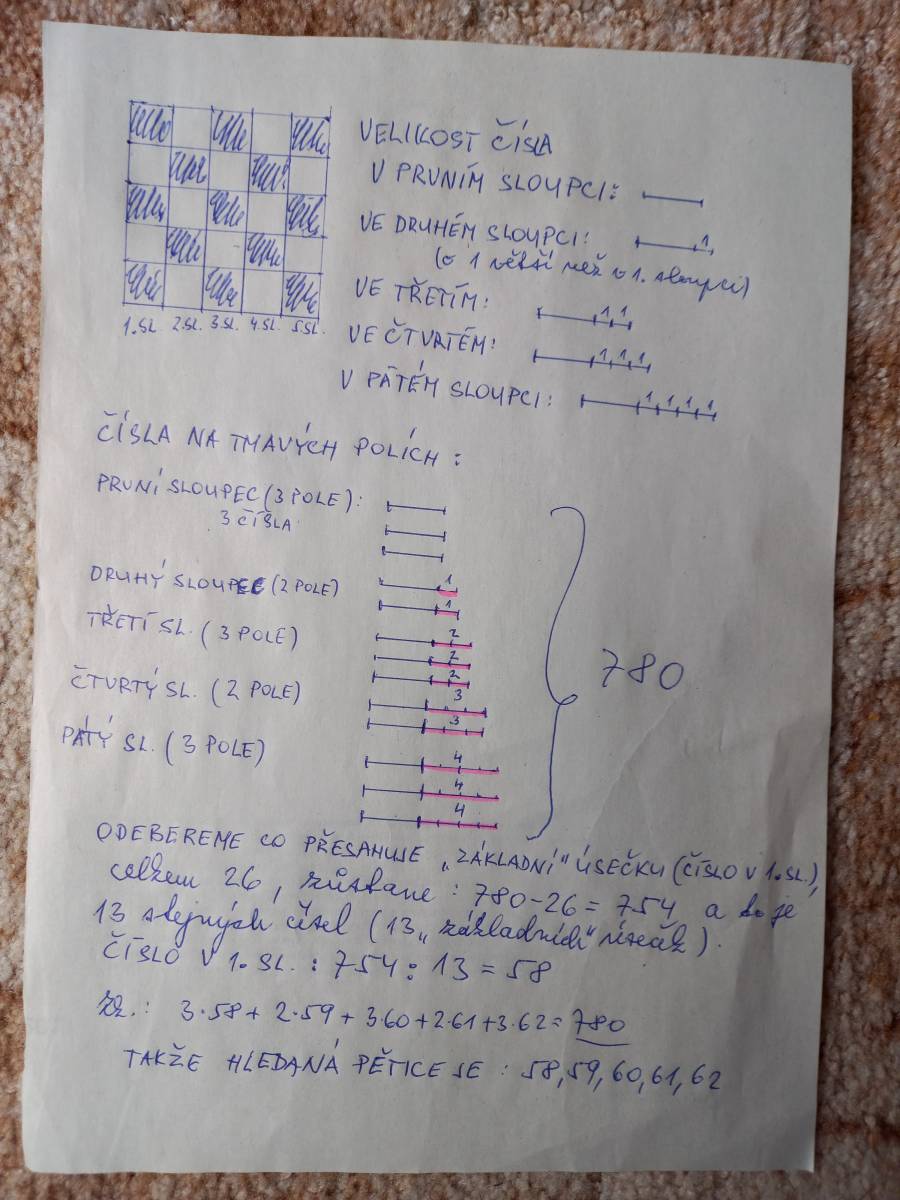 1.SL. 2.SL. 3.SL. 4.SL. 5.SL.
VELIKOST ČÍSLA
V PRVNÍM SLOUPCI:
VE DRUHÉM SLOUPCI: 1
(o 1 větší než v 1. sloupci)
VE TŘETÍM: 1 1
VE ČTVRTÉM: 1 1 1
V PÁTÉM SLOUPCI: 1 1 1 1
ČÍSLA NA TMAVÝCH POLÍCH:
PRVNÍ SLOUPEC (3 POLE):
3 ČÍSLA
DRUHÝ SLOUPEC (2 POLE) 1
1
TŘETÍ SL. (3 POLE) 2
2
2
780
ČTVRTÝ SL. (2 POLE) 3
3
PÁTÝ SL. (3 POLE) 4
4
4
ODEBEREME CO PŘESAHUJE „ZÁKLADNÍ" ÚSEČKU (ČÍSLO V 1. SL.),
celkem 26, zůstane: 780-26 = 754 a to je
13 stejných čísel (13 „základních" úseček).
ČÍSLO V 1. SL.: 754 : 13 = 58
zk.: 3·58 + 2·59 + 3·60 + 2·61 + 3·62 = 780
TAKŽE HLEDANÁ PĚTICE JE: 58, 59, 60, 61, 62